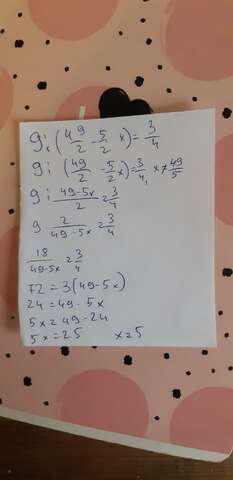 9 : (49/2 - 5/2 x) = 3/4
9 : (49/2 - 5/2 x) = 3/4, x ≠ 49/5
9 : (49-5x)/2 = 3/4
9 · 2/(49-5x) = 3/4
18/(49-5x) = 3/4
72 = 3(49-5x)
24 = 49 - 5x
5x = 49 - 24
5x = 25 x = 5